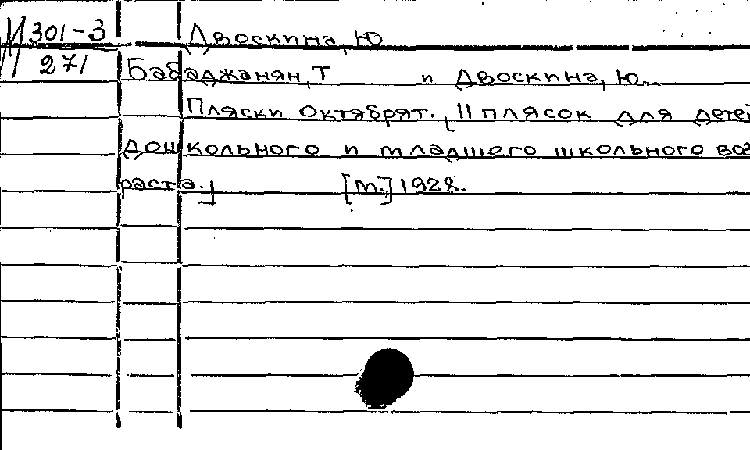 М 301-3 Двоскина, Ю
271 Бабаджанян, Т и Двоскина, Ю.
Пляски Октябрят. [11 плясок для детей
дошкольного и младшего школьного воз
раста.] [m.] 1928.